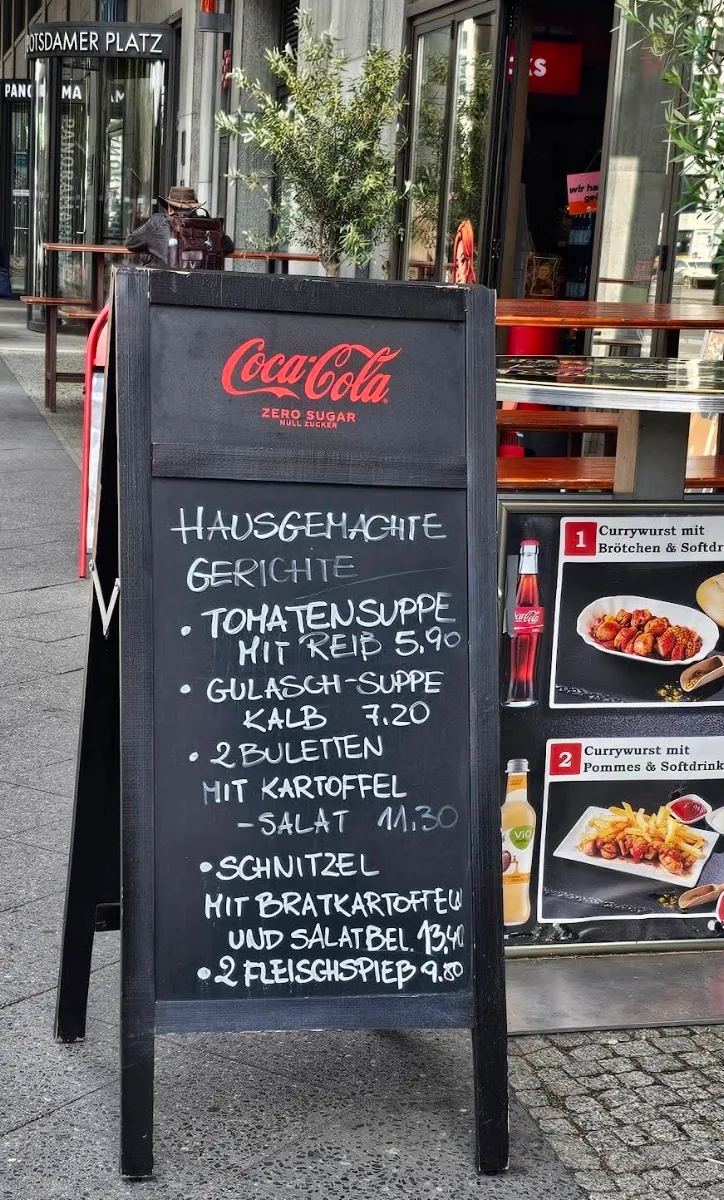 OTSDAMER PLATZ
PANO
MA
KS
wir ha
Coca-Cola
ZERO SUGAR
NULL ZUCKER
HAUSGEMACHTE
GERICHTE
• TOMATENSUPPE
MIT REIß 5.90
• GULASCH-SUPPE
KALB 7.20
• 2 BULETTEN
MIT KARTOFFEL
-SALAT 11.30
• SCHNITZEL
MIT BRATKARTOFFELN
UND SALATBEL. 13,40
• 2 FLEISCHSPIEß 9.80
1 Currywurst mit
Brötchen & Softdr
Coca-Cola
2 Currywurst mit
Pommes & Softdrink
ViO